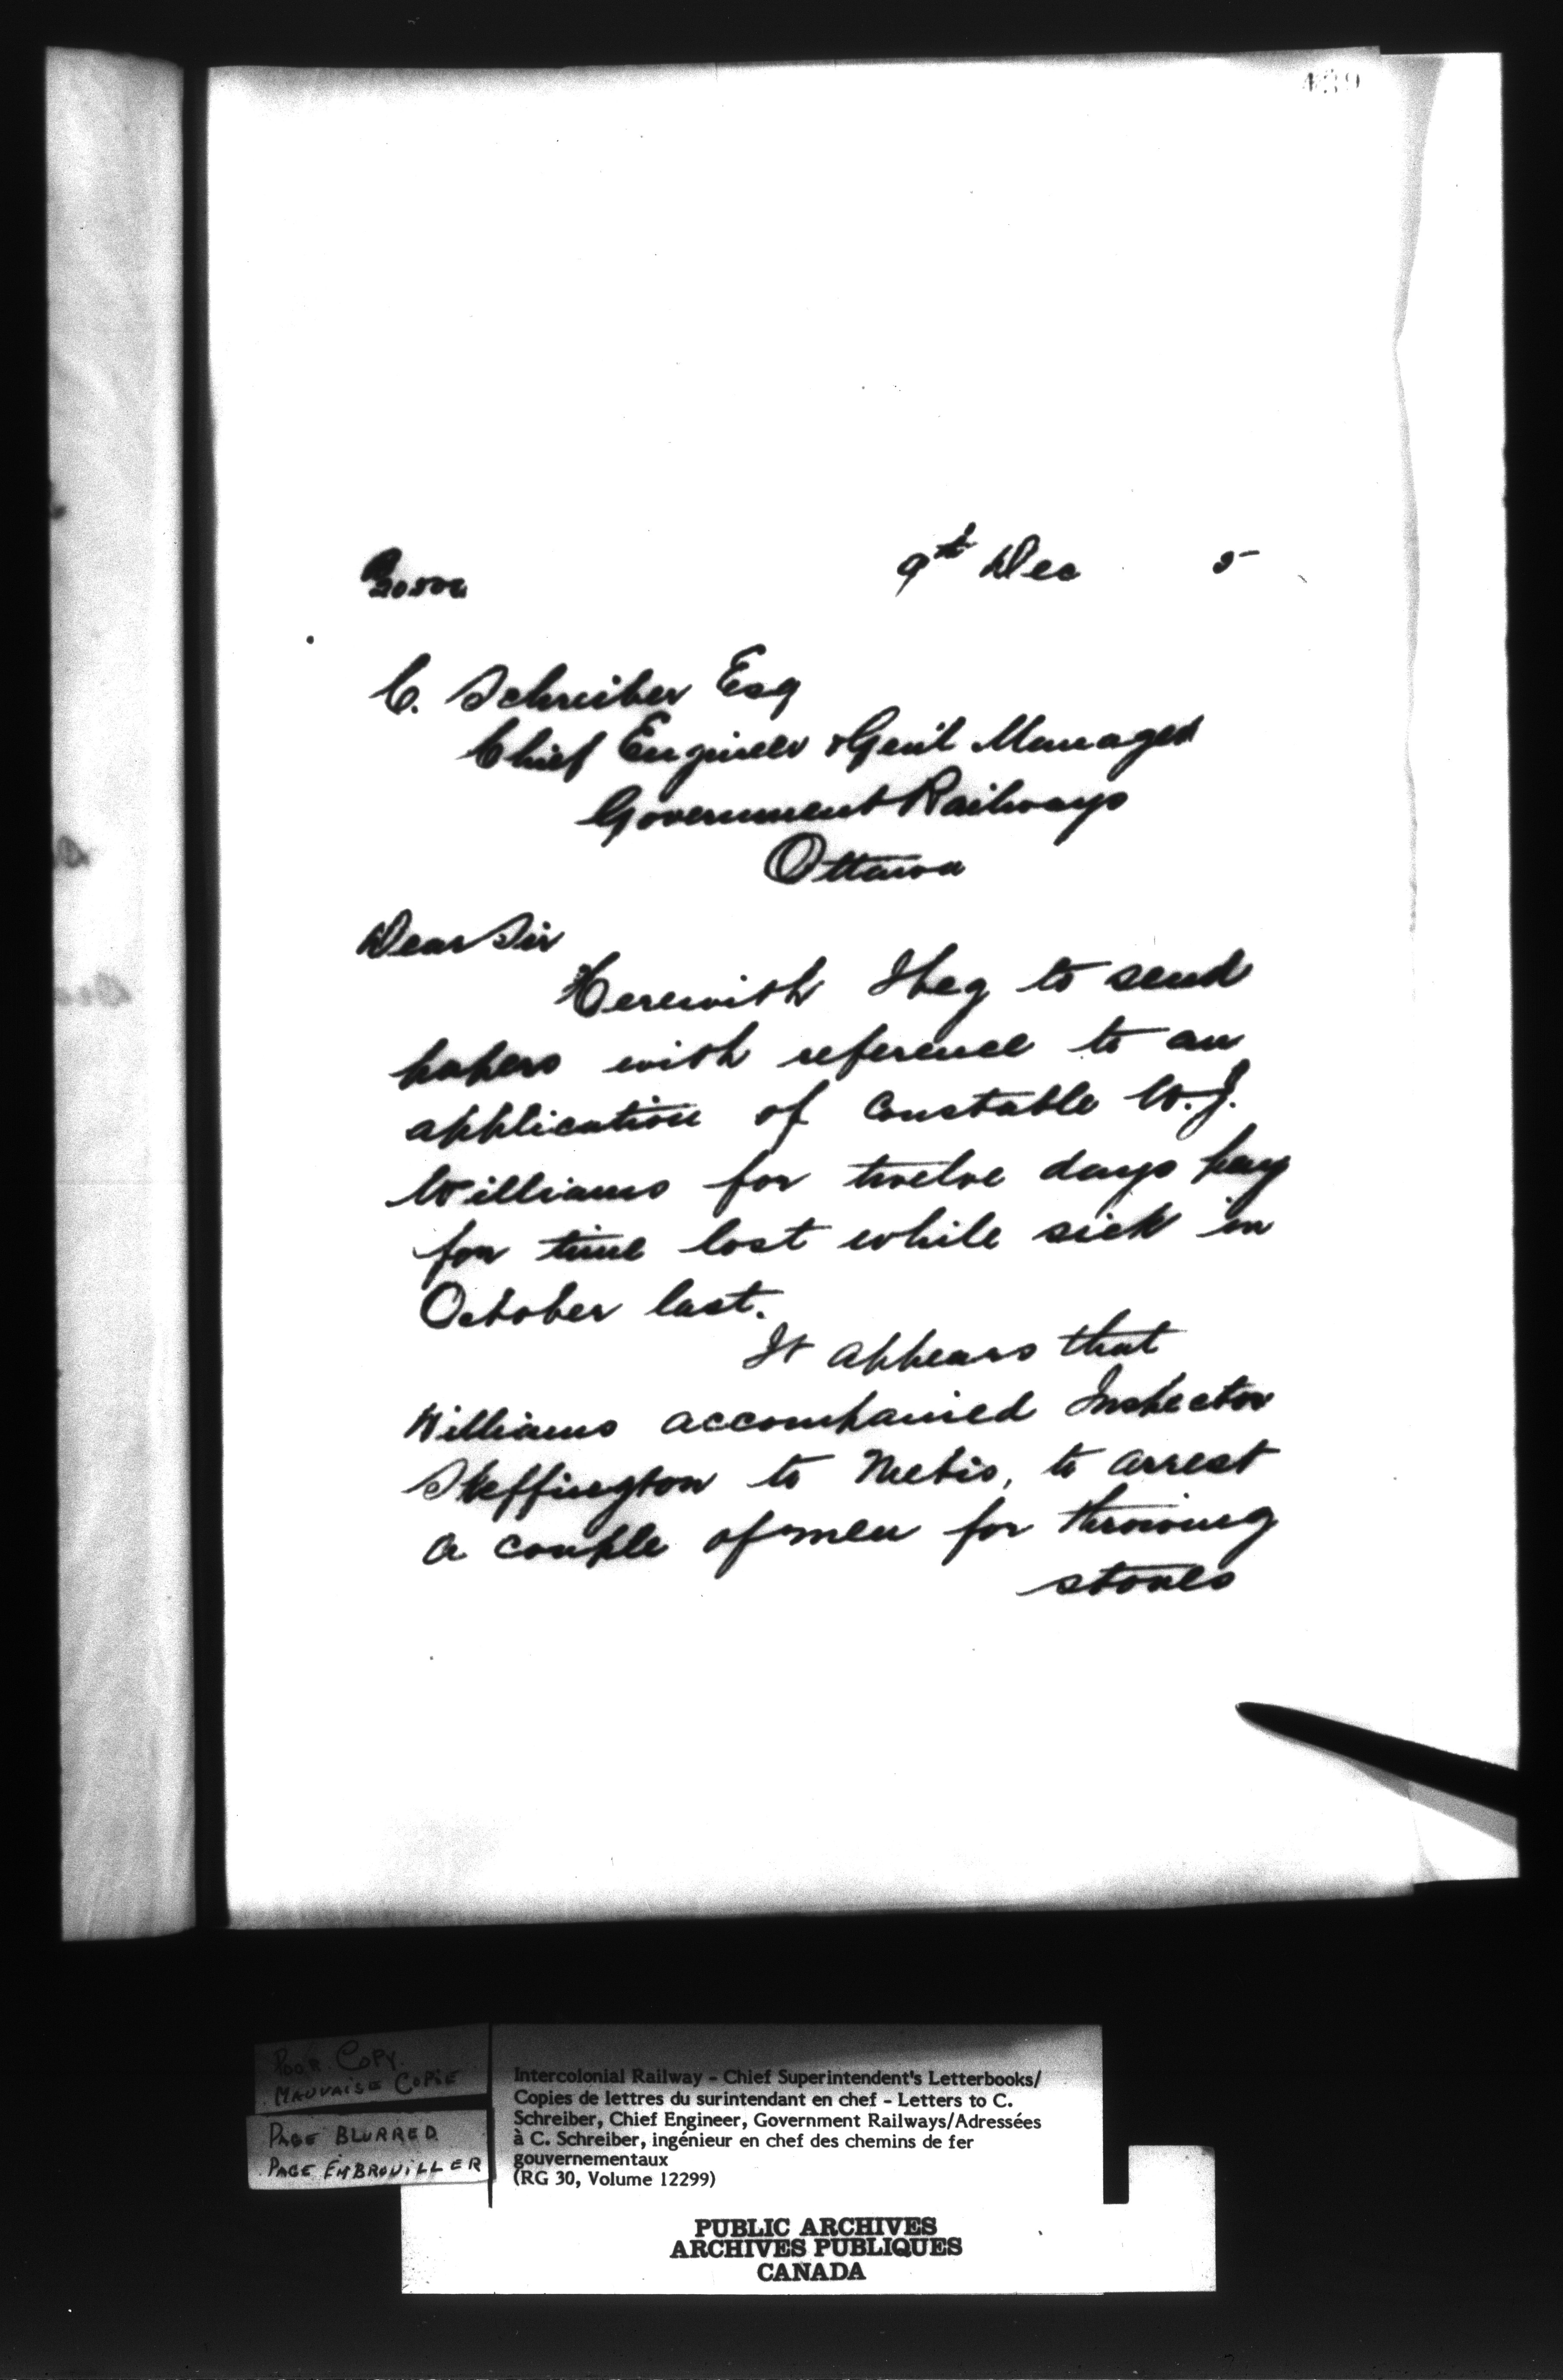 439
9th Dec 5
C. Schreiber Esq
Chief Engineer & Gen'l Manager
Government Railways
Ottawa
Dear Sir
Herewith I beg to send
papers with reference to an
application of Constable W.J.
Williams for twelve days pay
for time lost while sick in
October last.
It appears that
Williams accompanied Inspector
Skeffington to Metis, to arrest
a couple of men for throwing
stones
POOR COPY.
MAUVAISE COPIE
PAGE BLURRED
PAGE EMBROUILLER
Intercolonial Railway - Chief Superintendent's Letterbooks/
Copies de lettres du surintendant en chef - Letters to C.
Schreiber, Chief Engineer, Government Railways/Adressées
à C. Schreiber, ingénieur en chef des chemins de fer
gouvernementaux
(RG 30, Volume 12299)
PUBLIC ARCHIVES
ARCHIVES PUBLIQUES
CANADA